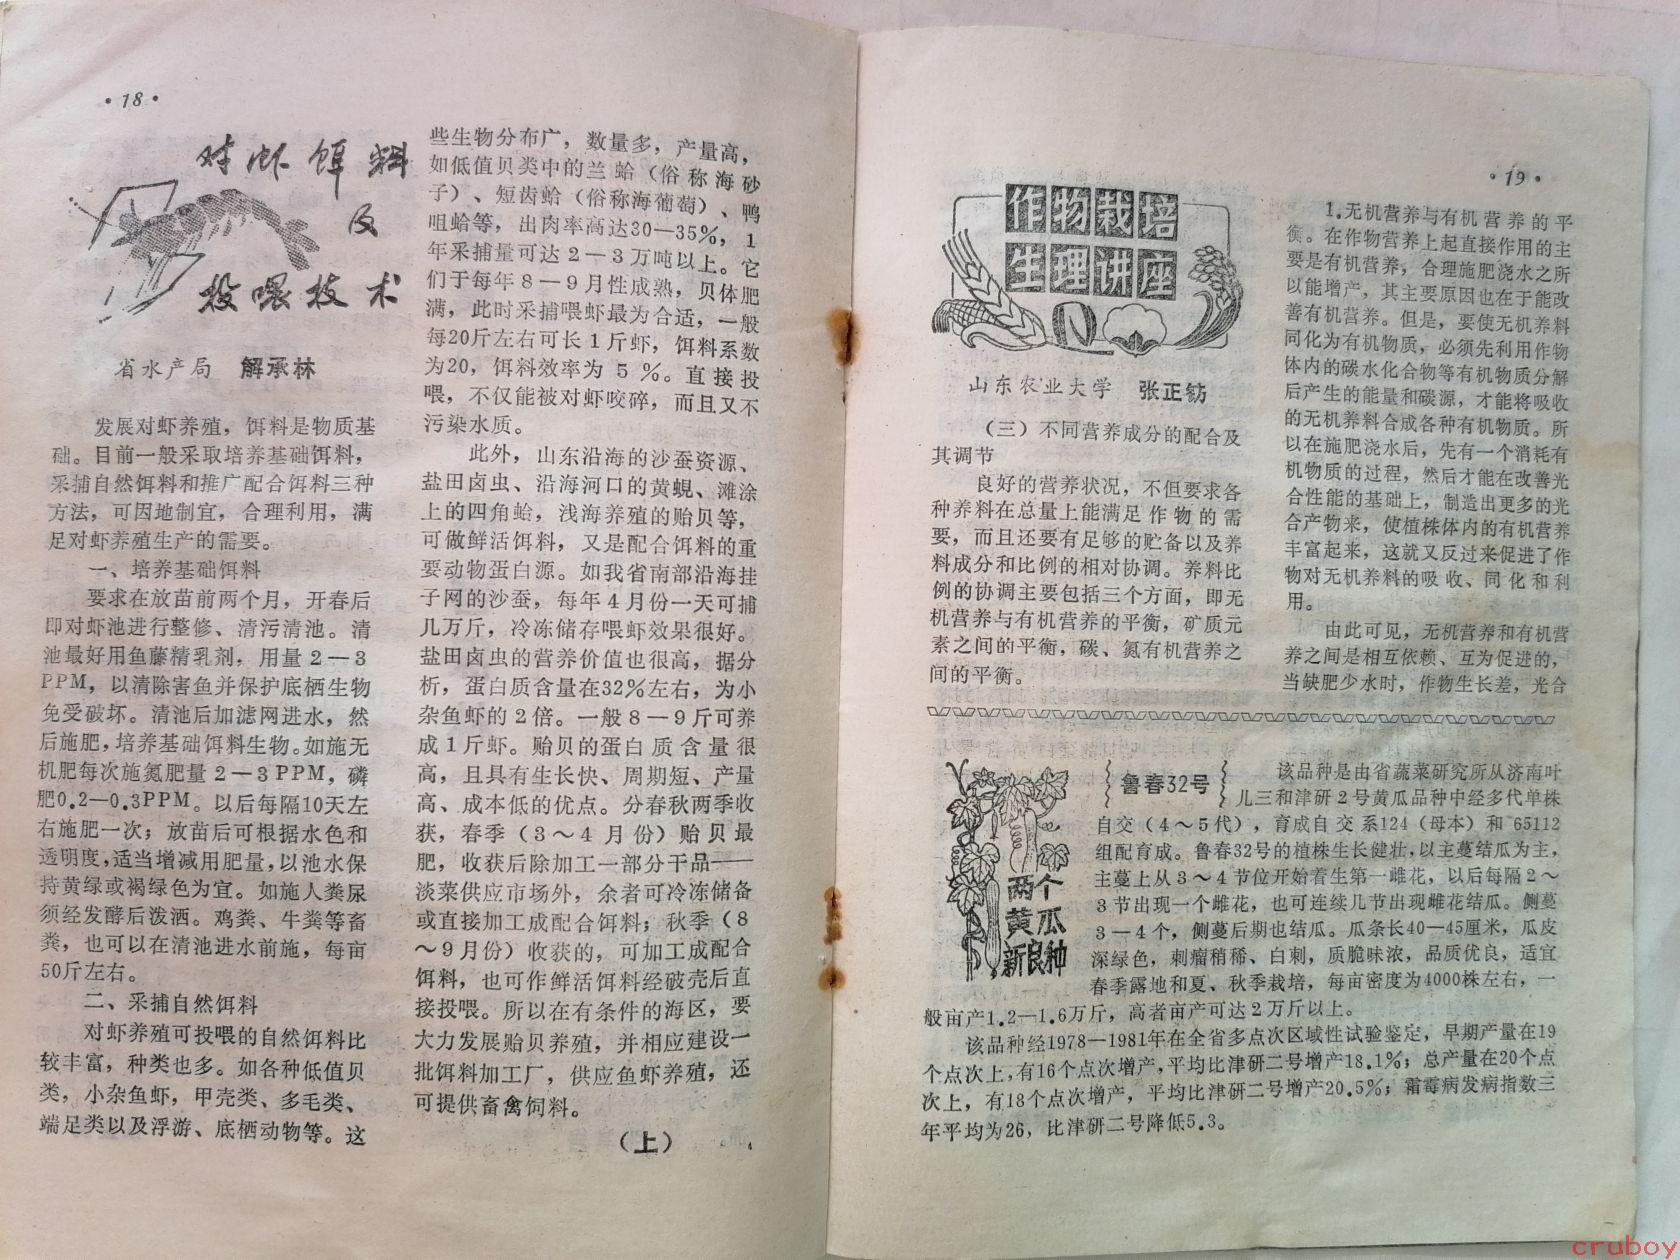 ·18·
对虾饵料
及
投喂技术
省水产局　解承林
发展对虾养殖，饵料是物质基
础。目前一般采取培养基础饵料，
采捕自然饵料和推广配合饵料三种
方法，可因地制宜，合理利用，满
足对虾养殖生产的需要。
一、培养基础饵料
要求在放苗前两个月，开春后
即对虾池进行整修、清污清池。清
池最好用鱼藤精乳剂，用量2—3
PPM，以清除害鱼并保护底栖生物
免受破坏。清池后加滤网进水，然
后施肥，培养基础饵料生物。如施无
机肥每次施氮肥量2—3PPM，磷
肥0.2—0.3PPM。以后每隔10天左
右施肥一次；放苗后可根据水色和
透明度，适当增减用肥量，以池水保
持黄绿或褐绿色为宜。如施人粪尿
须经发酵后泼洒。鸡粪、牛粪等畜
粪，也可以在清池进水前施，每亩
50斤左右。
二、采捕自然饵料
对虾养殖可投喂的自然饵料比
较丰富，种类也多。如各种低值贝
类，小杂鱼虾，甲壳类、多毛类、
端足类以及浮游、底栖动物等。这
些生物分布广，数量多，产量高，
如低值贝类中的兰蛤（俗称海砂
子）、短齿蛤（俗称海葡萄）、鸭
咀蛤等，出肉率高达30—35%，1
年采捕量可达2—3万吨以上。它
们于每年8—9月性成熟，贝体肥
满，此时采捕喂虾最为合适，一般
每20斤左右可长1斤虾，饵料系数
为20，饵料效率为5%。直接投
喂，不仅能被对虾咬碎，而且又不
污染水质。
此外，山东沿海的沙蚕资源、
盐田卤虫、沿海河口的黄蚬、滩涂
上的四角蛤，浅海养殖的贻贝等，
可做鲜活饵料，又是配合饵料的重
要动物蛋白源。如我省南部沿海挂
子网的沙蚕，每年4月份一天可捕
几万斤，冷冻储存喂虾效果很好。
盐田卤虫的营养价值也很高，据分
析，蛋白质含量在32%左右，为小
杂鱼虾的2倍。一般8—9斤可养
成1斤虾。贻贝的蛋白质含量很
高，且具有生长快、周期短、产量
高、成本低的优点。分春秋两季收
获，春季（3～4月份）贻贝最
肥，收获后除加工一部分干品——
淡菜供应市场外，余者可冷冻储备
或直接加工成配合饵料；秋季（8
～9月份）收获的，可加工成配合
饵料，也可作鲜活饵料经破壳后直
接投喂。所以在有条件的海区，要
大力发展贻贝养殖，并相应建设一
批饵料加工厂，供应鱼虾养殖，还
可提供畜禽饲料。
（上）
·19·
作物栽培
生理讲座
山东农业大学　张正钫
（三）不同营养成分的配合及
其调节
良好的营养状况，不但要求各
种养料在总量上能满足作物的需
要，而且还要有足够的贮备以及养
料成分和比例的相对协调。养料比
例的协调主要包括三个方面，即无
机营养与有机营养的平衡，矿质元
素之间的平衡，碳、氮有机营养之
间的平衡。
1.无机营养与有机营养的平
衡。在作物营养上起直接作用的主
要是有机营养，合理施肥浇水之所
以能增产，其主要原因也在于能改
善有机营养。但是，要使无机养料
同化为有机物质，必须先利用作物
体内的碳水化合物等有机物质分解
后产生的能量和碳源，才能将吸收
的无机养料合成各种有机物质。所
以在施肥浇水后，先有一个消耗有
机物质的过程，然后才能在改善光
合性能的基础上，制造出更多的光
合产物来，使植株体内的有机营养
丰富起来，这就又反过来促进了作
物对无机养料的吸收、同化和利
用。
由此可见，无机营养和有机营
养之间是相互依赖、互为促进的，
当缺肥少水时，作物生长差，光合
两个
黄瓜
新良种
鲁春32号
该品种是由省蔬菜研究所从济南叶
儿三和津研2号黄瓜品种中经多代单株
自交（4～5代），育成自交系124（母本）和65112
组配育成。鲁春32号的植株生长健壮，以主蔓结瓜为主，
主蔓上从3～4节位开始着生第一雌花，以后每隔2～
3节出现一个雌花，也可连续几节出现雌花结瓜。侧蔓
3—4个，侧蔓后期也结瓜。瓜条长40—45厘米，瓜皮
深绿色，刺瘤稍稀、白刺，质脆味浓，品质优良，适宜
春季露地和夏、秋季栽培，每亩密度为4000株左右，一
般亩产1.2—1.6万斤，高者亩产可达2万斤以上。
该品种经1978—1981年在全省多点次区域性试验鉴定，早期产量在19
个点次上，有16个点次增产，平均比津研二号增产18.1%；总产量在20个点
次上，有18个点次增产，平均比津研二号增产20.5%；霜霉病发病指数三
年平均为26，比津研二号降低5.3。
cruboy